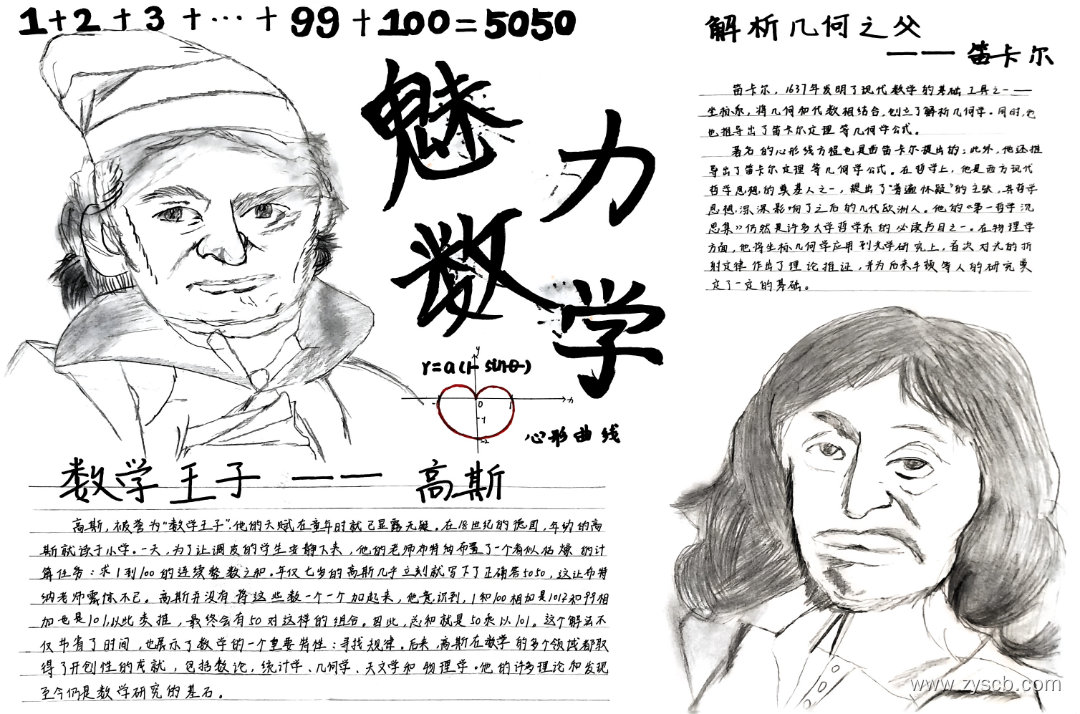 1+2+3+…+99+100=5050
魅力
数学
r=a(1-sinθ)
心形曲线
数学王子——高斯
高斯,被誉为"数学王子".他的天赋在童年时就已显露无疑。在18世纪的德国,年幼的高
斯就读于小学。一天,为了让调皮的学生安静下来,他的老师布特纳布置了一个看似枯燥的计
算任务:求1到100的连续整数之和.年仅七岁的高斯几乎立刻就写下了正确答5050,这让布特
纳老师震惊不已。高斯并没有将这些数一个一个加起来,他意识到,1和100相加是101,2和99相
加也是101,以此类推,最终会有50对这样的组合。因此,总和就是50乘以101。这个解法不
仅节省了时间,也展示了数学的一个重要特性:寻找规律。后来,高斯在数学的多个领域都取
得了开创性的成就,包括数论,统计学、几何学、天文学和物理学.他的许多理论和发现
至今仍是数学研究的基石。
解析几何之父
——笛卡尔
笛卡尔,1637年发明了现代数学的基础工具之一——
坐标系,将几何和代数相结合,创立了解析几何学。同时,他
也推导出了笛卡尔定理等几何学公式。
著名的心形线方程也是由笛卡尔提出的;此外,他还推
导出了笛卡尔定理等几何学公式。在哲学上,他是西方现代
哲学思想的奠基人之一,提出了"普遍怀疑"的主张,其哲学
思想深深影响了之后的几代欧洲人。他的《第一哲学沉
思集》仍然是许多大学哲学系的必读书目之一。在物理学
方面,他将坐标几何学应用到光学研究上,首次对光的折
射定律作出了理论推证,并为后来牛顿等人的研究奠
定了一定的基础。
www.zyscb.com